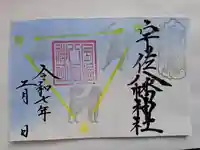 宇佐八幡神社
令和七年
月 日